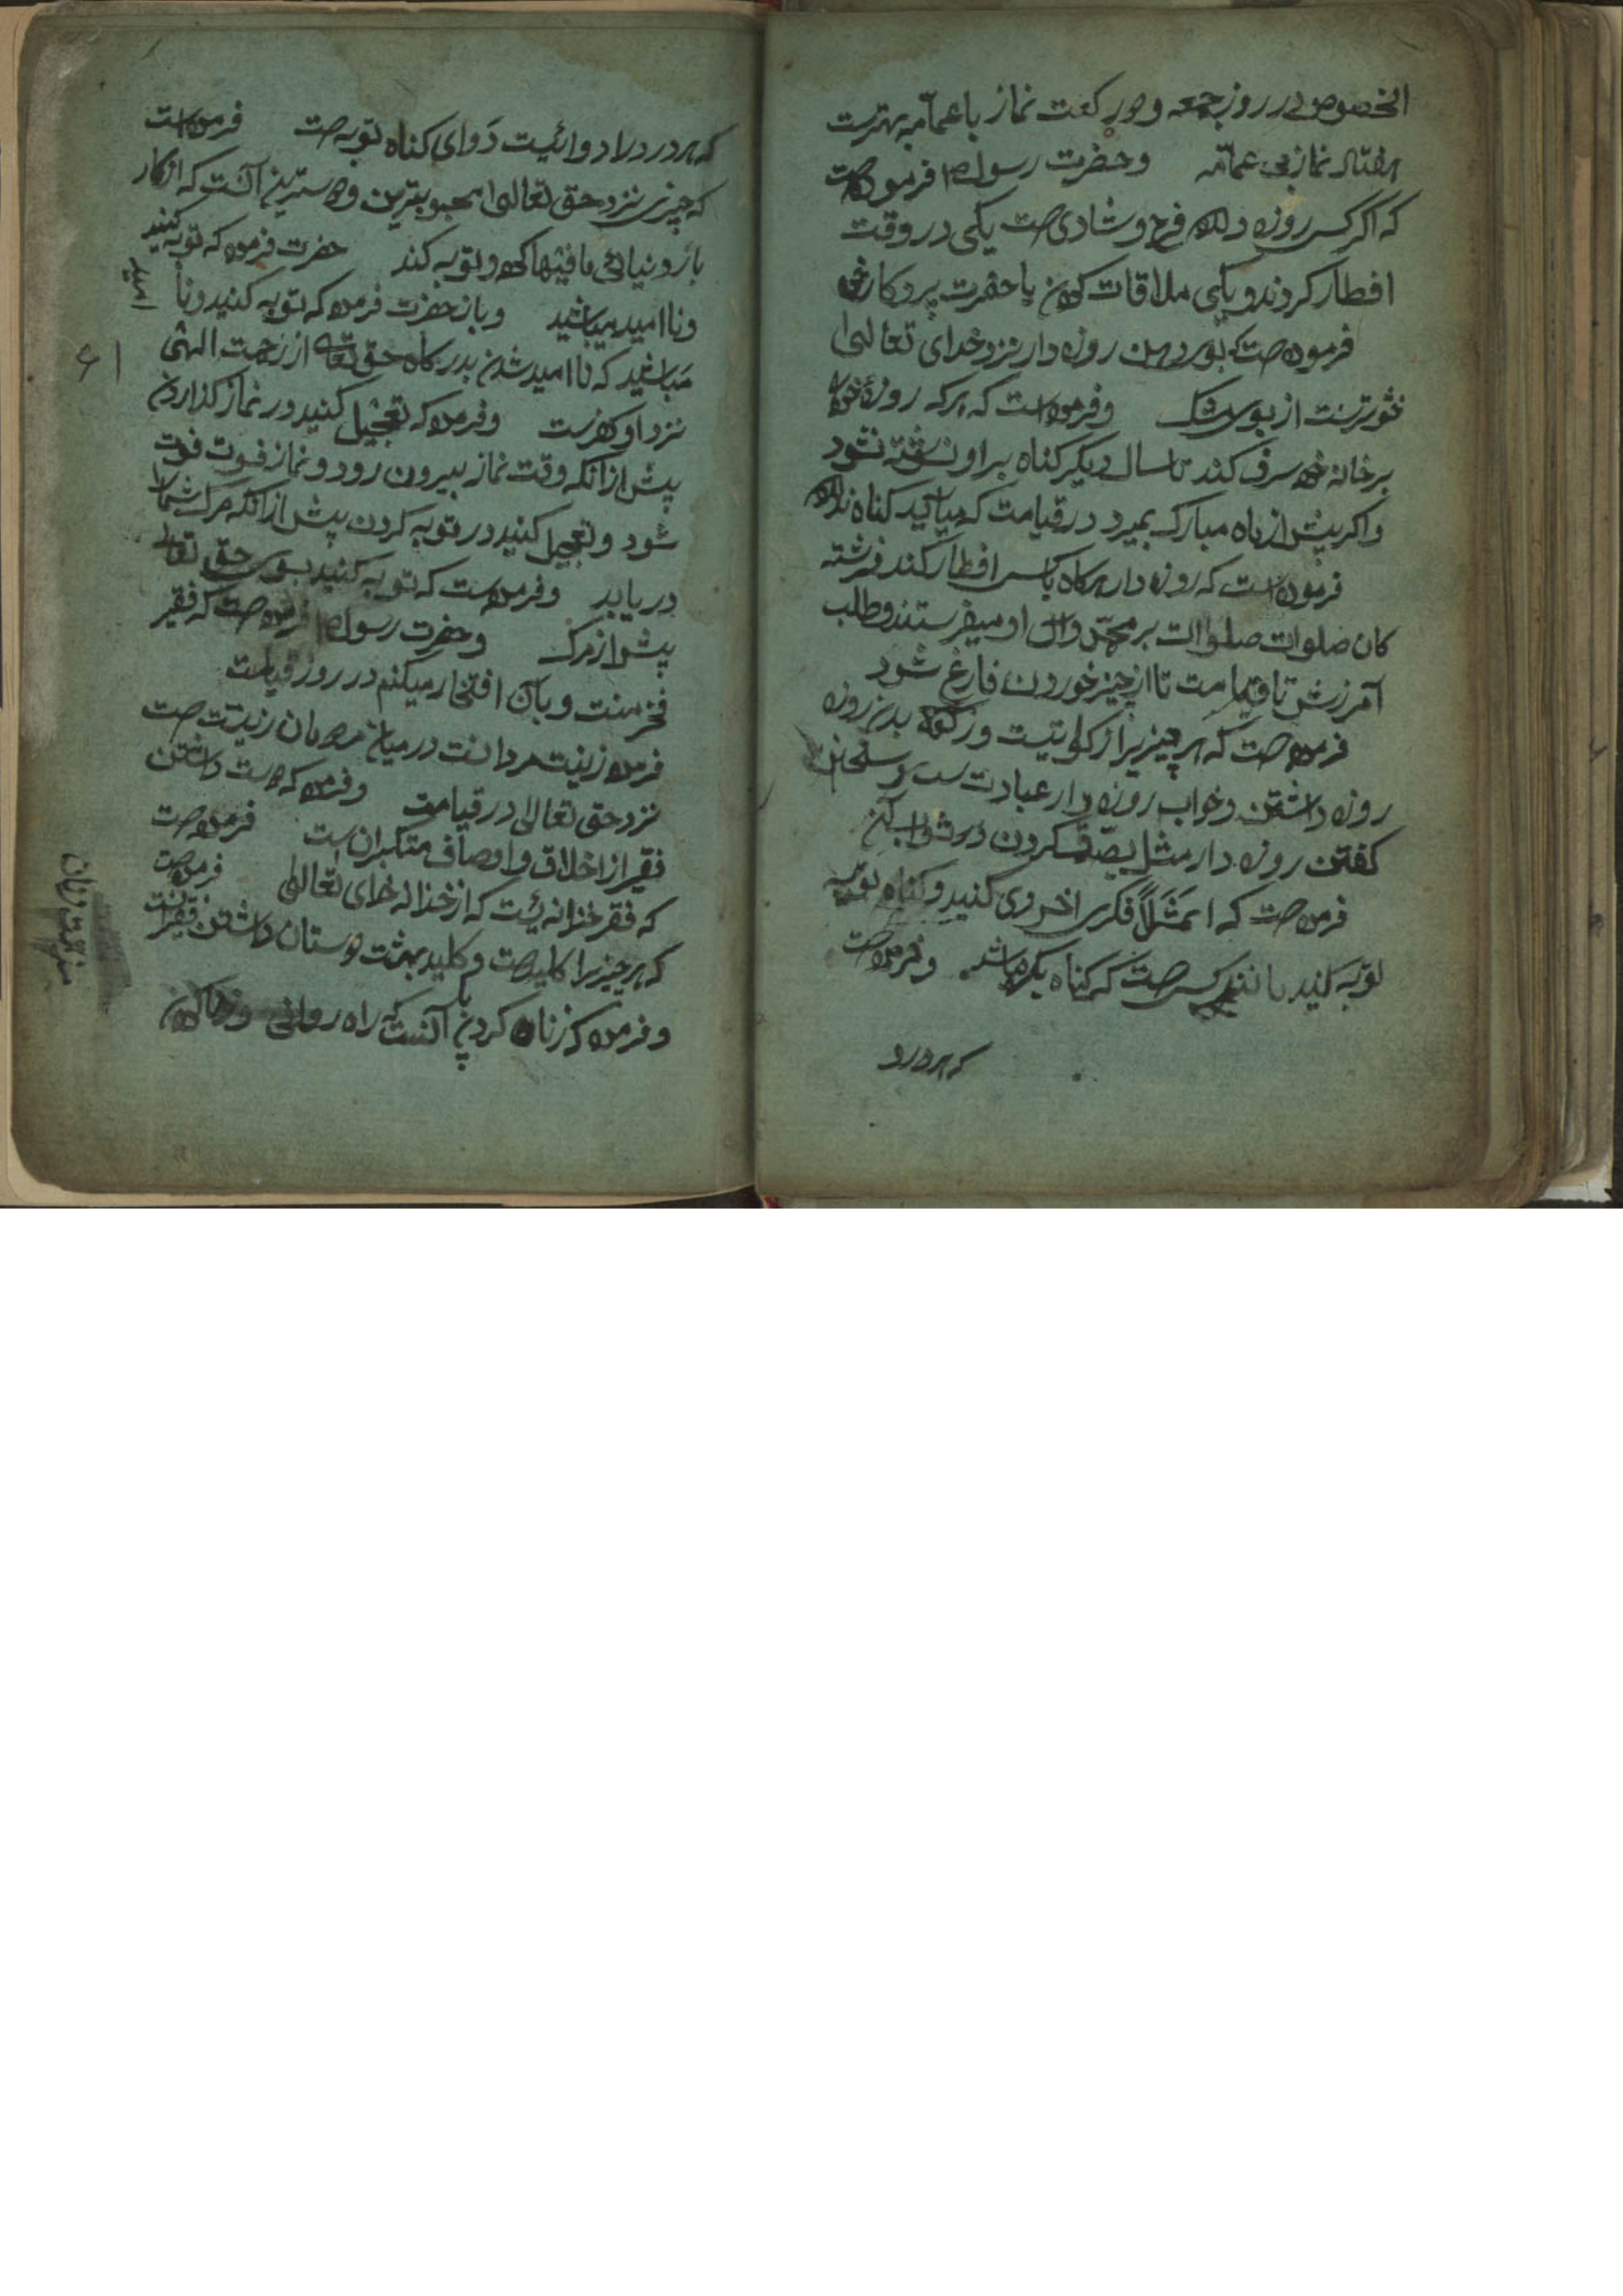 الخصوص در روز جمعه و دو رکعت نماز با عمامه بهترست
هفتاد نماز بی عمامه وحضرت رسول ص فرموده است
که اکر کسی روزه دارد فرح و شادی است یکی در وقت
افطار کردند و یکی ملاقات کردن با حضرت پروردکارش
فرموده است که بوی دهن روزه دار نزد خدای تعالی
خوشترست از بوی مشک وفرموده است که هرکه روزهٔ خود
بر خانه خود سرف کند تا سال دیکر کناه بر او نوشته نشود
واکر پیش از ماه مبارک بمیرد در قیامت که میآید کناه ندارد
فرموده است که روزه دار هرکاه با کسی افطار کند فرشته
کان صلوات صلوات بر محمد وآل او میفرستند و طلب
آمرزش تا قیامت تا از چیز خوردن فارغ شود
فرموده است که هر چیز برا زکواتیست و زکوة بدن روزه
روزه داشتن وخواب روزه دار عبادت است و سخن
کفتن روزه دار مثل تصدق کردن
فرموده است که فکری اخروی کنید و کناه توبه
توبه کنید مانند کسی است که کناه نکرده باشد وفرموده است
که هر درد
که هر درد را دوائیست دوای کناه توبه است فرموده است
که چیزی نزد حق تعالی محبوبترین ودوسترین آنست که از کار
باز دنیائی ما فیها کرده و توبه کند حضرت فرموده که توبه کنید
ونا امید میباشید وباز حضرت فرموده که توبه کنید ونا
امید
مباشید که نا امید شدن بدرکاه حق تعالی از رحمت الهی
نزد او کفرست وفرموده که تعجیل کنید در نماز کذاردن
پیش از آنکه وقت نماز بیرون رود و نماز فوت فوت
شود وتعجیل کنید در توبه کردن پیش از آنکه مرک شما را
دریابد وفرموده است که توبه کنید بسوی حق تعالی
پیش از مرک وحضرت رسول ص فرموده است که فقیر
فخر منست و بآن افتخار میکنم در روز قیامت
فرموده زینت مردانست در میان مردمان زینتت است
نزد حق تعالی در قیامت وفرموده که دوست داشتن
فقیر از اخلاق و اوصاف متکبران است فرموده است
که فقر خزانه ئیست که از خزانه خدای تعالی فرموده است
که هر چیز را کلید است و کلید بهشت دوستان داشتن فقیرانست
وفرموده که زناه کردن با آنست که راه روانی
۶۱